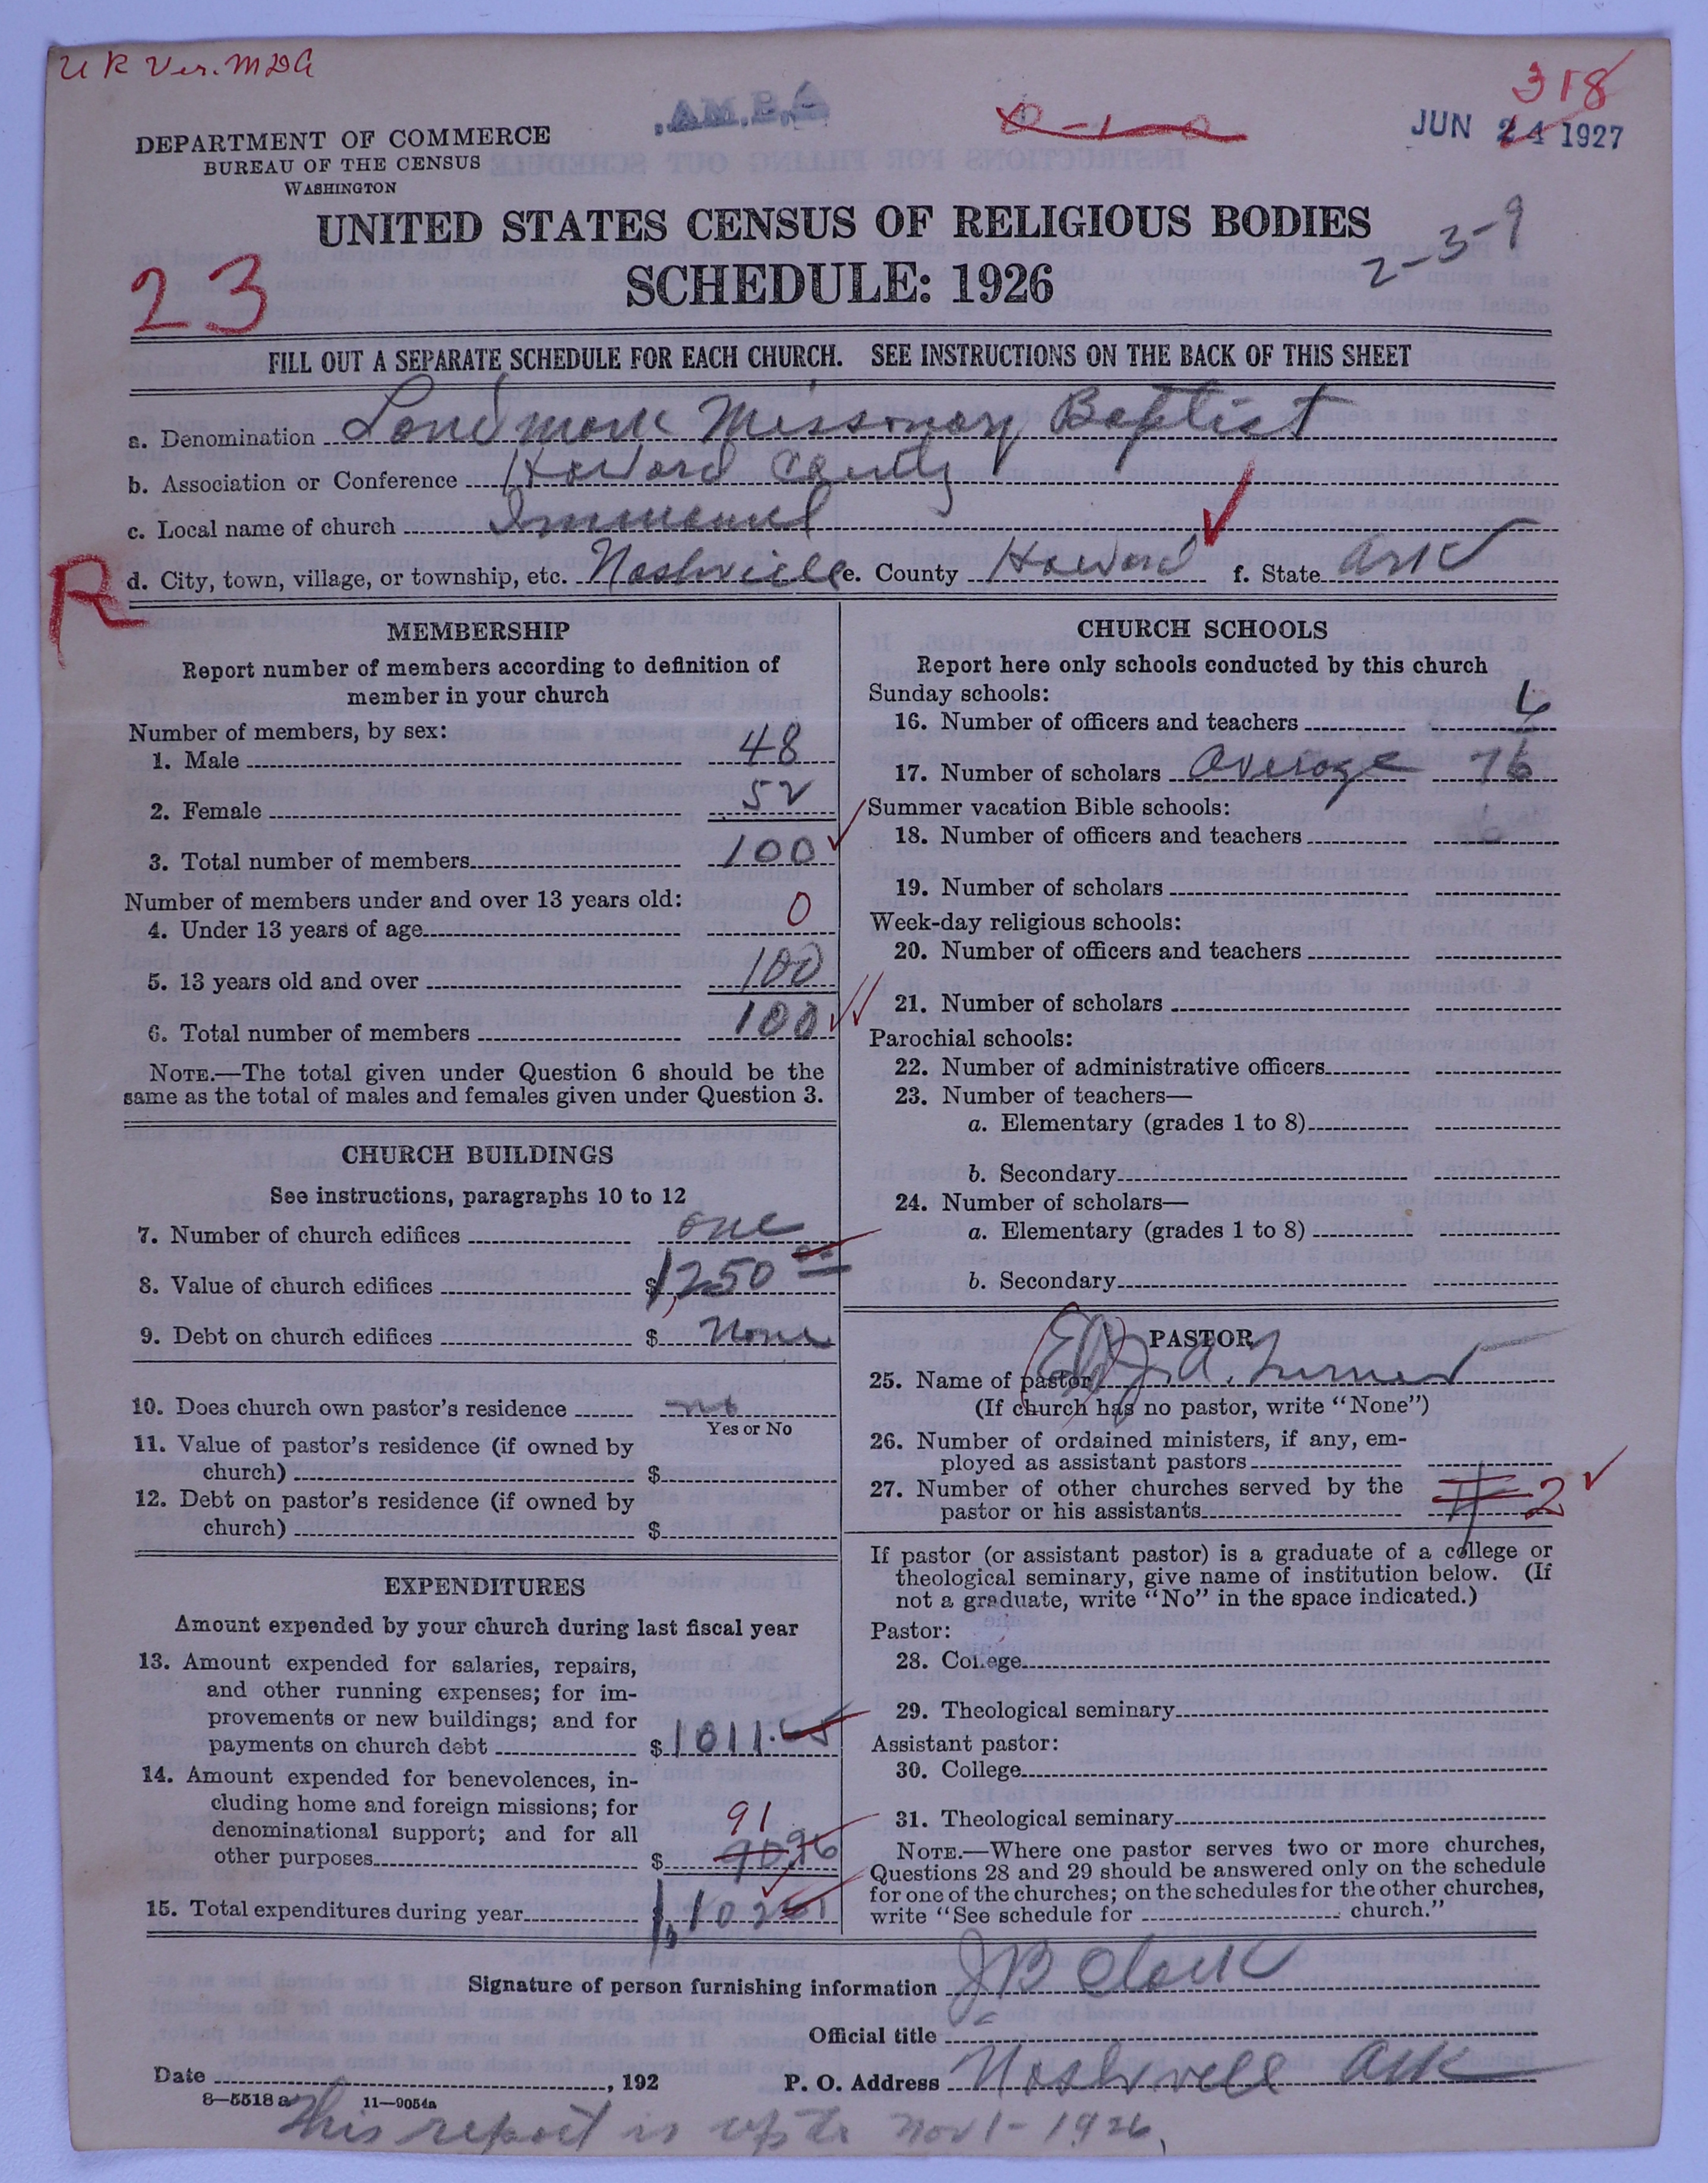 U R Ver. MDA
A.B.M.A.
318
JUN 24 1927
DEPARTMENT OF COMMERCE
BUREAU OF THE CENSUS
WASHINGTON
UNITED STATES CENSUS OF RELIGIOUS BODIES
2-3-9
23
SCHEDULE: 1926
FILL OUT A SEPARATE SCHEDULE FOR EACH CHURCH. SEE INSTRUCTIONS ON THE BACK OF THIS SHEET
a. Denomination Landmark Missionary Baptist
b. Association or Conference Howard County
c. Local name of church Immanuel
R
d. City, town, village, or township, etc. Nashville e. County Howard f. State Ark
MEMBERSHIP
Report number of members according to definition of
member in your church
Number of members, by sex:
1. Male 48
2. Female 52
3. Total number of members 100
Number of members under and over 13 years old:
4. Under 13 years of age 0
5. 13 years old and over 100
6. Total number of members 100
NOTE.—The total given under Question 6 should be the
same as the total of males and females given under Question 3.
CHURCH BUILDINGS
See instructions, paragraphs 10 to 12
7. Number of church edifices one
8. Value of church edifices $1,250 00
9. Debt on church edifices $ None
10. Does church own pastor's residence no
Yes or No
11. Value of pastor's residence (if owned by
church) $
12. Debt on pastor's residence (if owned by
church) $
EXPENDITURES
Amount expended by your church during last fiscal year
13. Amount expended for salaries, repairs,
and other running expenses; for im-
provements or new buildings; and for
payments on church debt $ 1011.
14. Amount expended for benevolences, in-
cluding home and foreign missions; for
denominational support; and for all
91
other purposes $ 90.96
15. Total expenditures during year 1,102
CHURCH SCHOOLS
Report here only schools conducted by this church
Sunday schools:
16. Number of officers and teachers 6
17. Number of scholars average 76
Summer vacation Bible schools:
18. Number of officers and teachers
19. Number of scholars
Week-day religious schools:
20. Number of officers and teachers
21. Number of scholars
Parochial schools:
22. Number of administrative officers
23. Number of teachers—
a. Elementary (grades 1 to 8)
b. Secondary
24. Number of scholars—
a. Elementary (grades 1 to 8)
b. Secondary
PASTOR
25. Name of pastor A. Turner
(If church has no pastor, write "None")
26. Number of ordained ministers, if any, em-
ployed as assistant pastors
27. Number of other churches served by the
pastor or his assistants 2
If pastor (or assistant pastor) is a graduate of a college or
theological seminary, give name of institution below. (If
not a graduate, write "No" in the space indicated.)
Pastor:
28. College
29. Theological seminary
Assistant pastor:
30. College
31. Theological seminary
NOTE.—Where one pastor serves two or more churches,
Questions 28 and 29 should be answered only on the schedule
for one of the churches; on the schedules for the other churches,
write "See schedule for church."
Signature of person furnishing information J B Clark
Official title
Date , 192
P. O. Address Nashville Ark
8—5518 a 11—9054a
This report is up to Nov 1 - 1926.